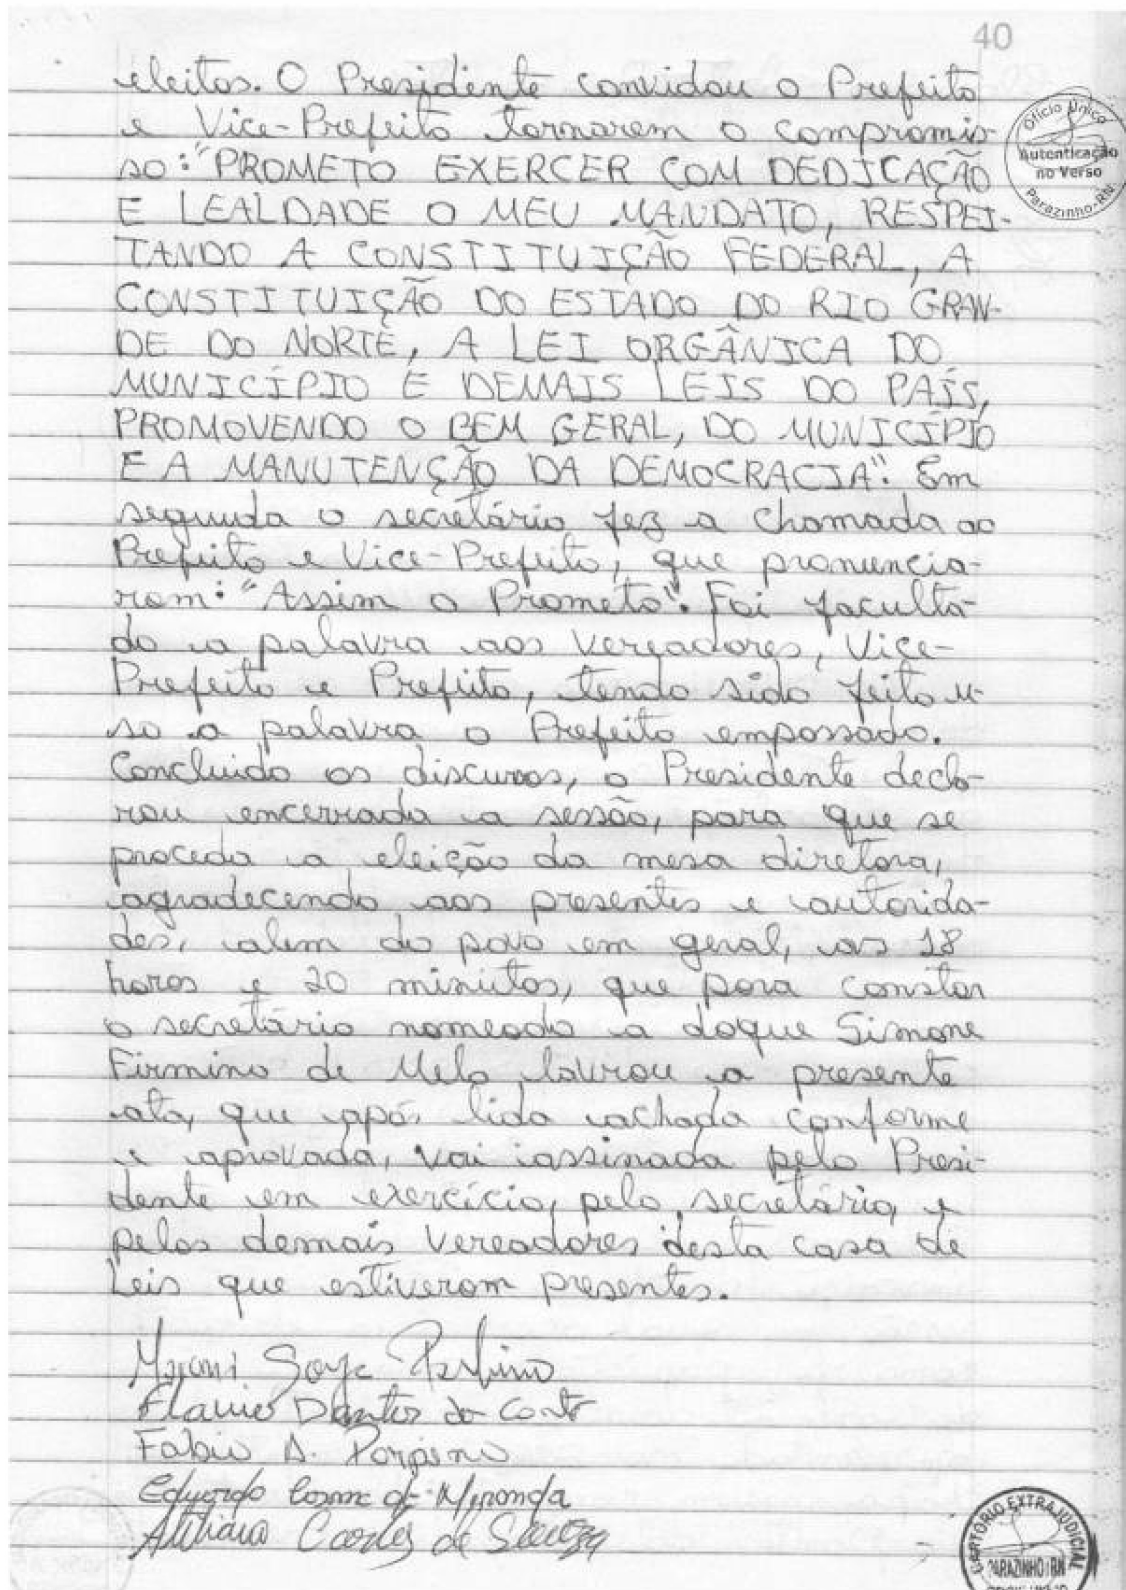 40
eleitos. O Presidente convidou o Prefeito
e Vice-Prefeito tornarem o compromis-
so: "PROMETO EXERCER COM DEDICAÇÃO
E LEALDADE O MEU MANDATO, RESPEI-
TANDO A CONSTITUIÇÃO FEDERAL, A
CONSTITUIÇÃO DO ESTADO DO RIO GRAN-
DE DO NORTE, A LEI ORGÂNICA DO
MUNICÍPIO E DEMAIS LEIS DO PAÍS,
PROMOVENDO O BEM GERAL, DO MUNICÍPIO
E A MANUTENÇÃO DA DEMOCRACIA". Em
seguida o secretário fez a chamada ao
Prefeito e Vice-Prefeito, que pronuncia-
ram: "Assim o Prometo". Foi faculta-
do a palavra aos vereadores, Vice-
Prefeito e Prefeito, tendo sido feito u-
so a palavra o Prefeito empossado.
Concluido os discursos, o Presidente decla-
rou encerrada a sessão, para que se
proceda a eleição da mesa diretora,
agradecendo aos presentes e autorida-
des, alem do povo em geral, as 18
horas e 20 minutos, que para constar
o secretário nomeado a doque Simone
Firmino de Melo lavrou a presente
ata, que após lida achada conforme
e aprovada, vai assinada pelo Presi-
dente em exercício, pelo secretário, e
pelos demais Vereadores desta casa de
Leis que estiveram presentes.
Flavio Dantas da
Fabio A.
Eduardo Cosme de Miranda
de Souza
Ofício Único
Autenticação
no Verso
Parazinho-RN
CARTÓRIO EXTRAJUDICIAL
PARAZINHO RN